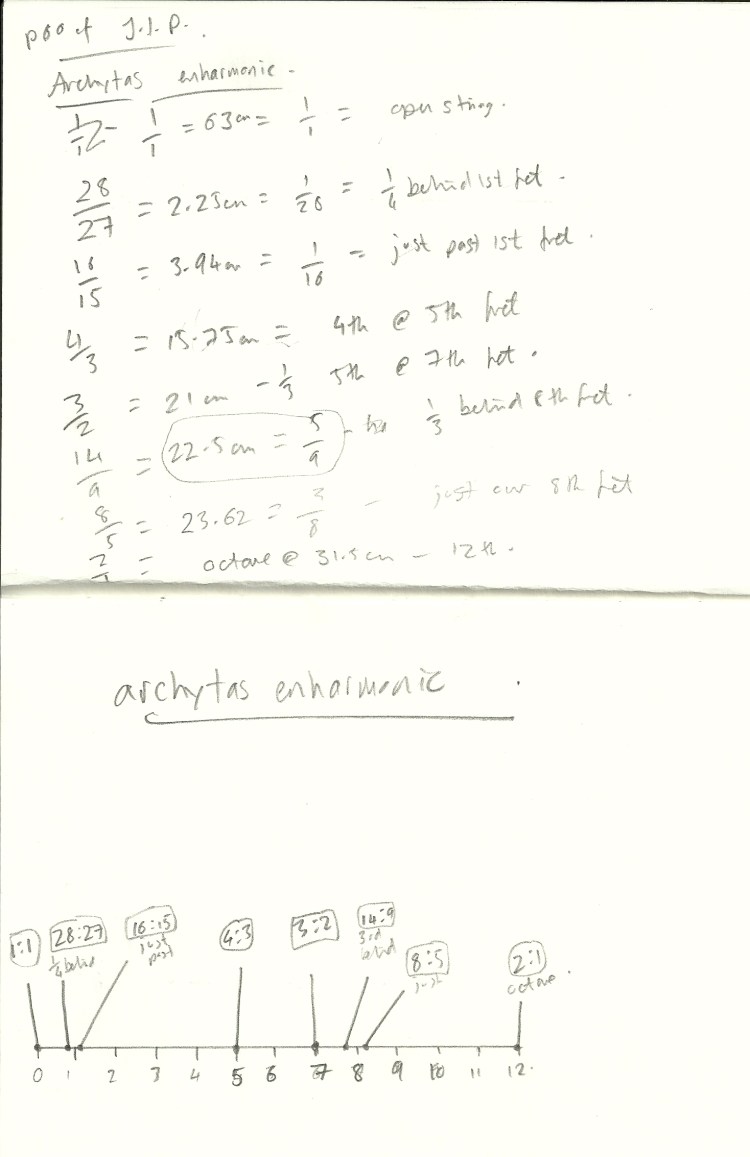 poo of J.I.P.
Archytas enharmonic -
1/1 = 63cm = 1/1 = open string.
28/27 = 2.25cm = 1/28 = 1/4 behind 1st fret -
16/15 = 3.94cm = 1/16 = just past 1st fret.
4/3 = 15.75cm = 4th @ 5th fret
3/2 = 21cm - 1/3 5th @ 7th fret.
14/9 = 22.5cm = 5/9 - 1/3 behind 8th fret.
8/5 = 23.62 = 3/8 - just over 8th fret
2/1 = octave @ 31.5cm - 12th.
archytas enharmonic
1:1 28:27 16:15 4:3 3:2 14:9 8:5 2:1
1/4 behind just past 3rd behind just octave.
0 1 2 3 4 5 6 7 8 9 10 11 12.